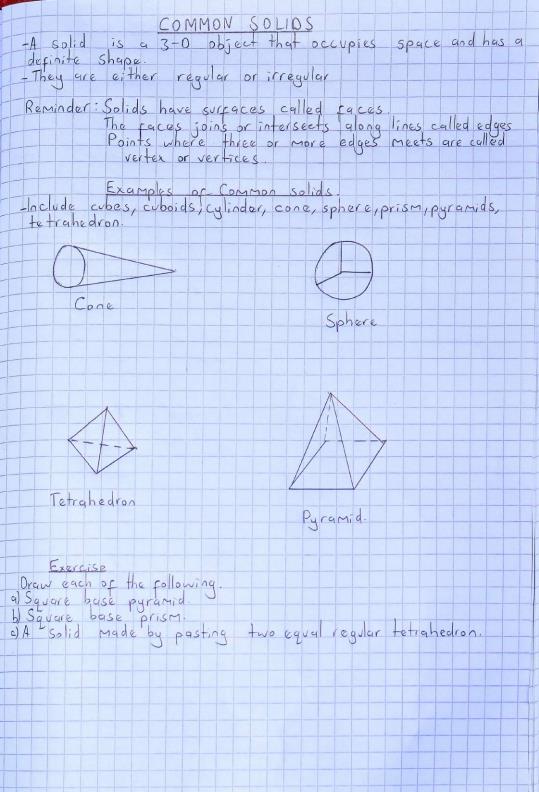 COMMON SOLIDS
-A solid is a 3-D object that occupies space and has a
definite shape.
-They are either regular or irregular
Reminder: Solids have surfaces called faces.
The faces joins or intersects along lines called edges
Points where three or more edges meets are called
vertex or vertices.
Examples of Common solids.
-Include cubes, cuboids, cylinder, cone, sphere, prism, pyramids,
tetrahedron.
Cone
Sphere
Tetrahedron
Pyramid.
Exercise
Draw each of the following.
a) Square base pyramid.
b) Square base prism.
c) A solid made by pasting two equal regular tetrahedron.